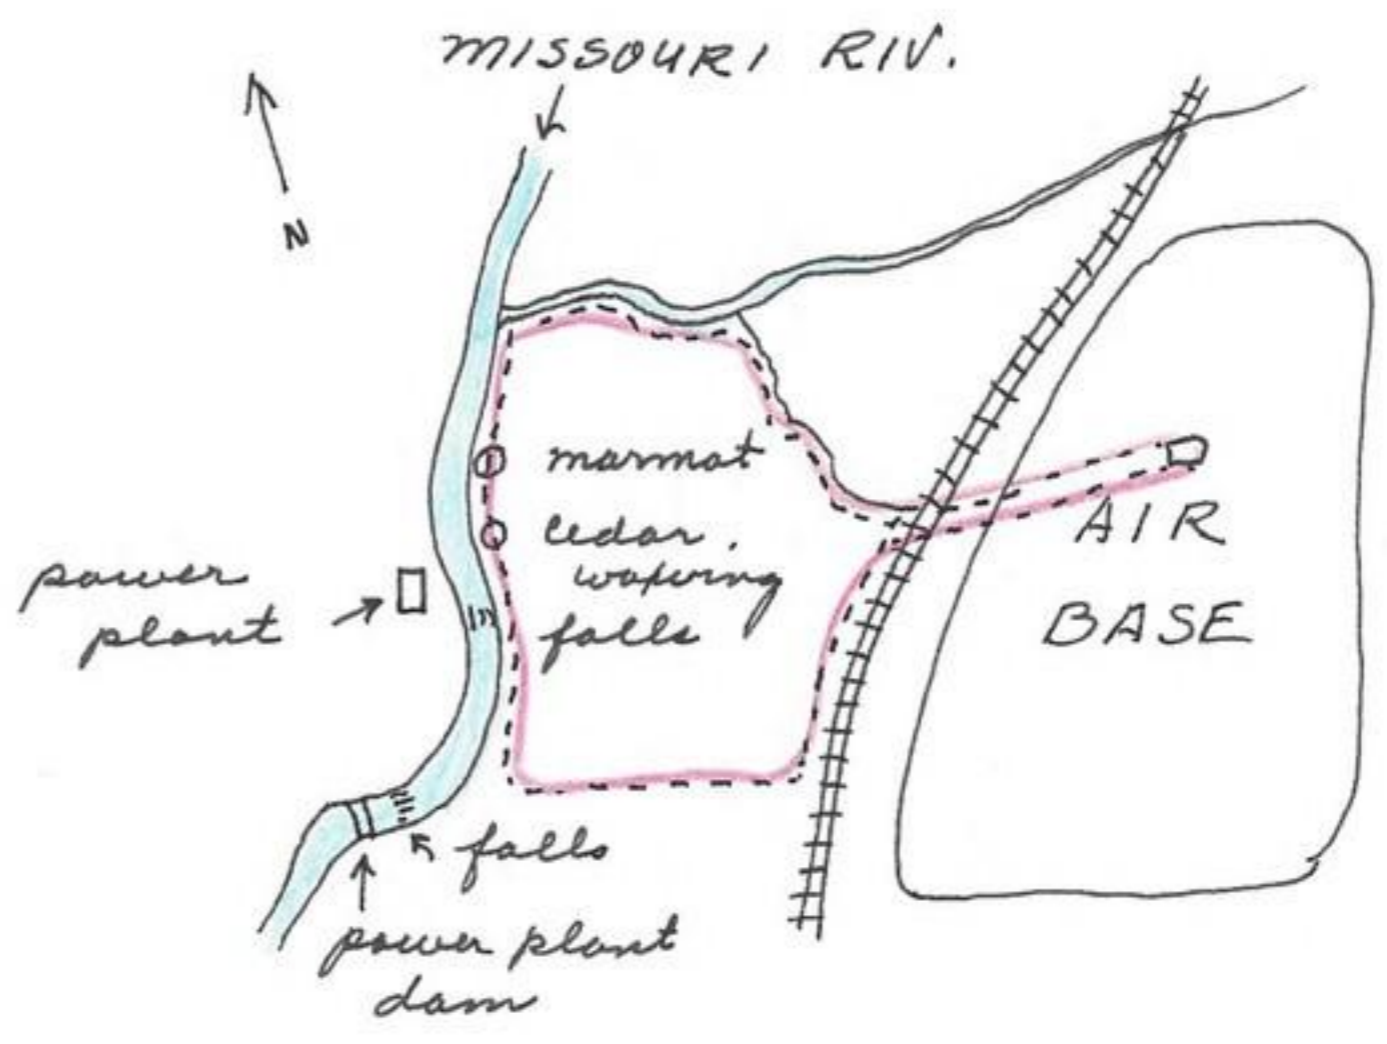 MISSOURI RIV.
N
marmot
cedar .
waxwing
falls
power
plant
AIR
BASE
falls
power plant
dam